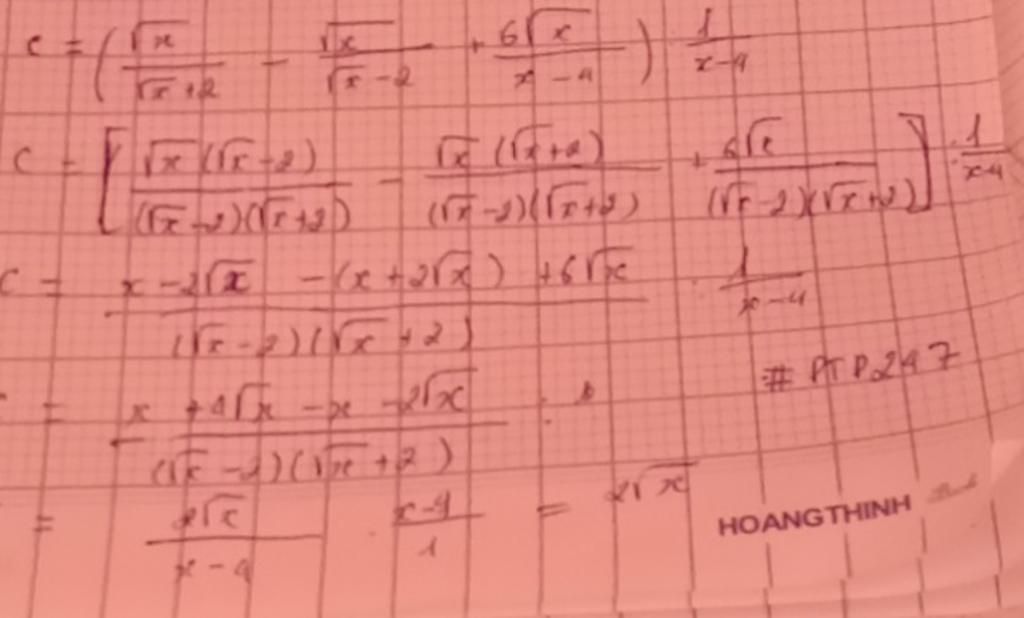 C = ( √x / √x + 2 − √x / √x − 2 + 6√x / x − 4 ) 1 / x − 4
C = [ √x (√x − 2) / (√x − 2)(√x + 2) − √x (√x + 2) / (√x − 2)(√x + 2) + 6√x / (√x − 2)(√x + 2) ] · 1 / x − 4
C = x − 2√x − (x + 2√x) + 6√x / (√x − 2)(√x + 2) · 1 / x − 4
= x + 4√x − x − 2√x / (√x − 2)(√x + 2) :
# PTP247
= 2√x / x − 4 · x − 4 / 1 = 2√x
HOANGTHINH